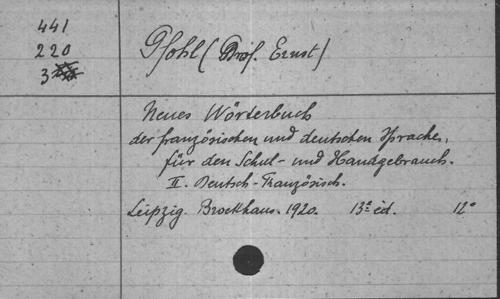 441
220
3
Pfohl (Prof. Ernst)
Neues Wörterbuch
der französischen und deutschen Sprache,
für den Schul- und Handgebrauch.
II. Deutsch-Französisch.
Leipzig. Brockhaus. 1920. 13e éd. 12°